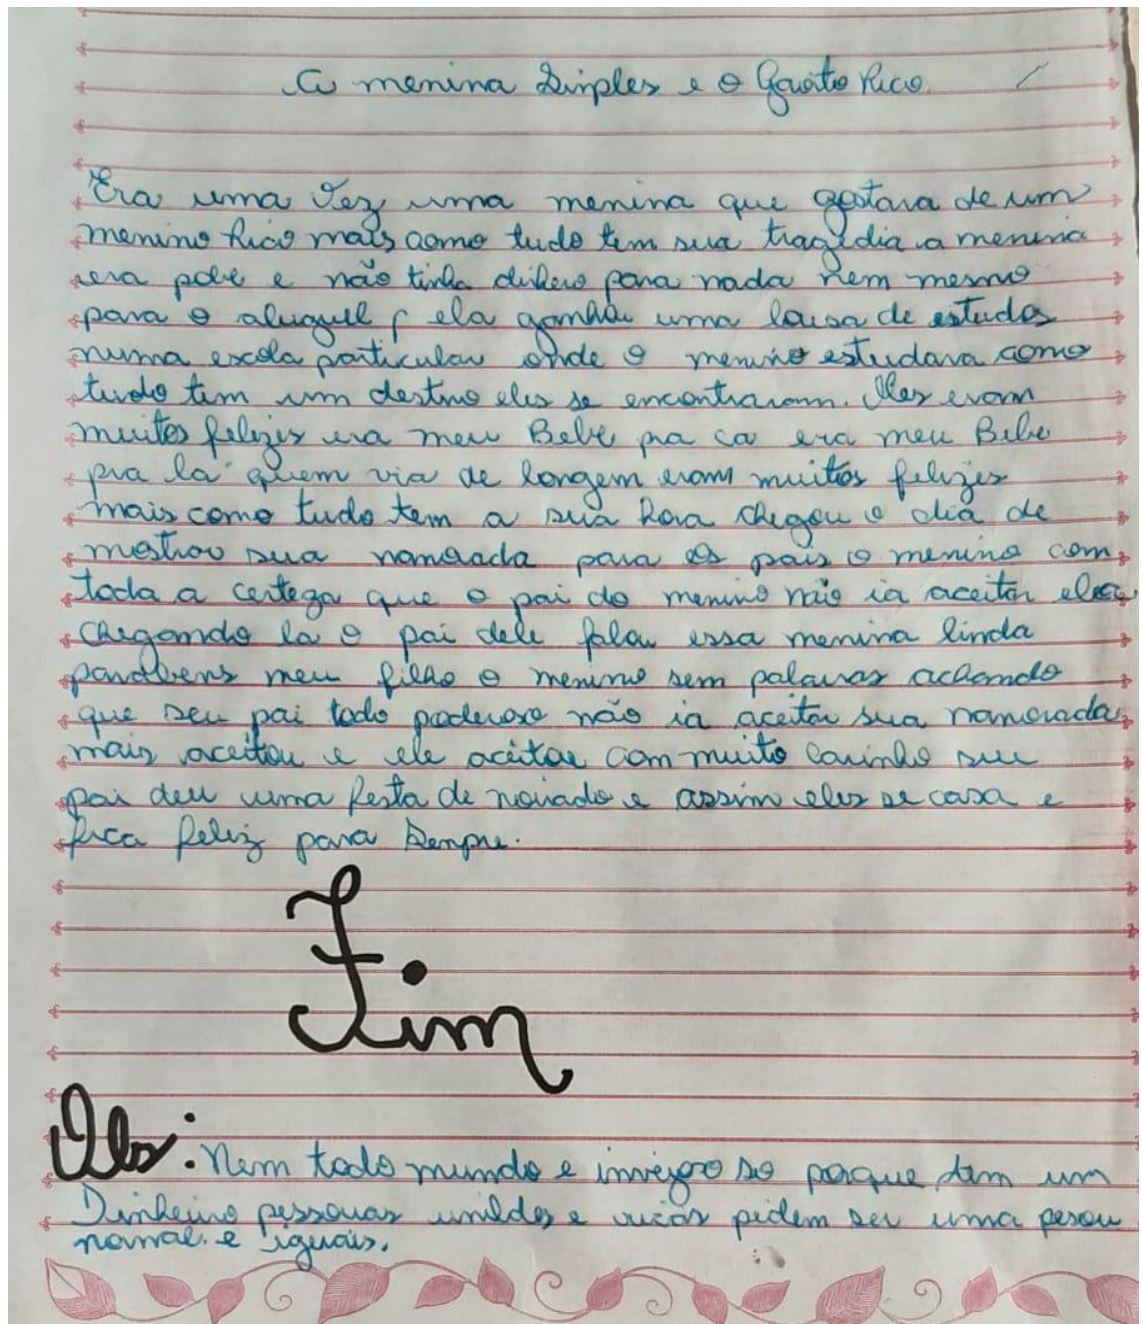 A menina Simples e o Garoto Rico
Era uma Vez uma menina que gostava de um
menino Rico mais como tudo tem sua tragédia a menina
era pobe e não tinha dinhero para nada nem mesmo
para o aluguel ela ganhou uma de estudos
numa escola particular onde o menino estudava como
tudo tem um destino eles se encontraram. Eles eram
muitos felizes era meu Bebe pra ca era meu Bebe
pra la quem via de longem eram muitos felizes
mais como tudo tem a sua hora chegou o dia de
mostrou sua namorada para os pais o menino com
toda a certeza que o pai do menino não ia aceitar ela
chegando la o pai dele falou essa menina linda
parabens meu filho o menino sem palavras achando
que seu pai todo poderoso não ia aceitar sua namorada
mais aceitou e ele aceitou com muito carinho seu
pai deu uma festa de noivado e assim eles se casa e
fica feliz para Sempre.
Fim
Obs: Nem todo mundo e so porque tem um
Dinheiro pessouas umildes e ricas podem ser uma pesou
normal. e iguais.